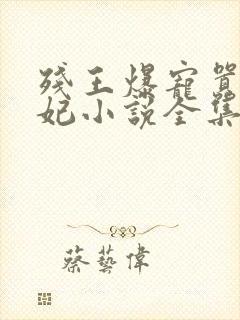 残王爆寵囂
妃小說全集
蔡藝偉